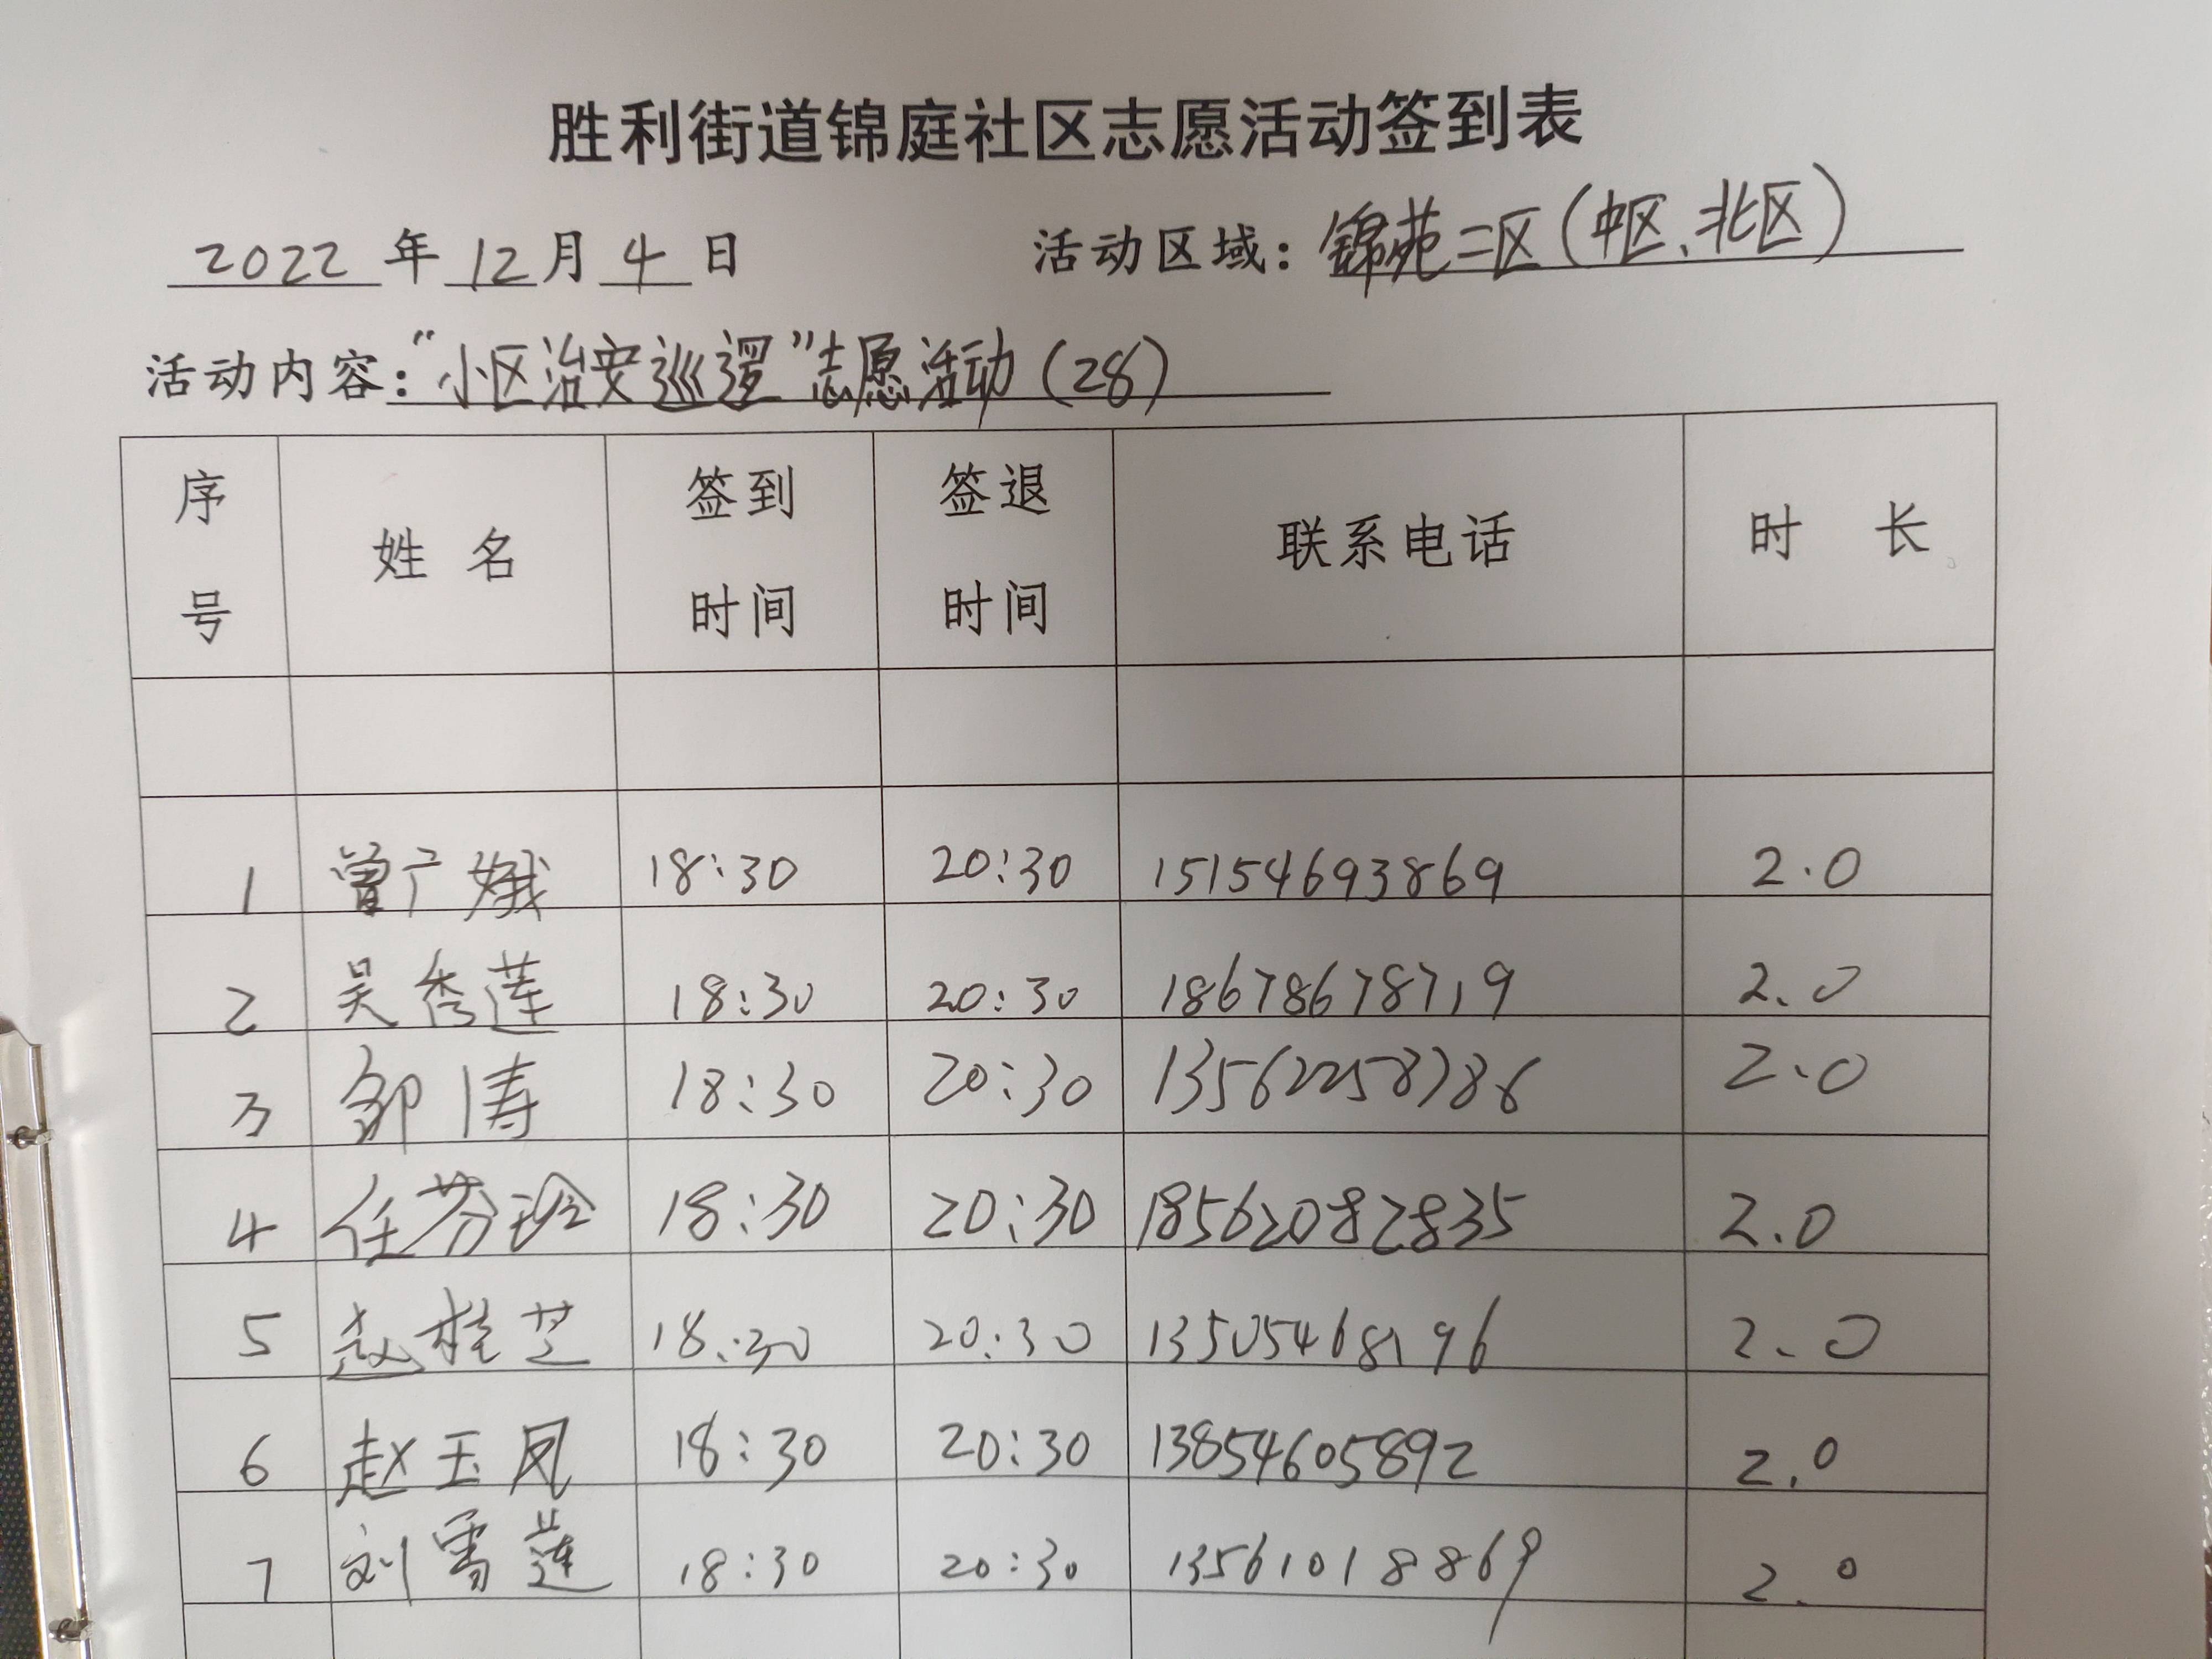 胜利街道锦庭社区志愿活动签到表
2022 年 12 月 4 日 活动区域：锦苑二区（中区、北区）
活动内容：“小区治安巡逻”志愿活动（28）
序号 姓名 签到时间 签退时间 联系电话 时长
1 曾广娥 18:30 20:30 15154693869 2.0
2 吴秀莲 18:30 20:30 18678678719 2.0
3 邹涛 18:30 20:30 13562258786 2.0
4 任芬玲 18:30 20:30 18562082835 2.0
5 赵桂芝 18:30 20:30 13505468196 2.0
6 赵玉凤 18:30 20:30 13854605892 2.0
7 刘雪莲 18:30 20:30 13561018869 2.0